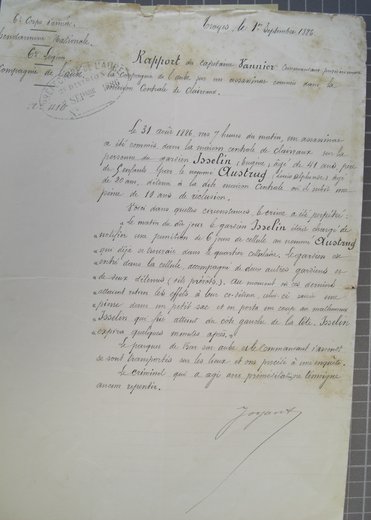 6e Corps d'armée
Troyes le 1er Septembre 1886
Gendarmerie Nationale.
6e Légion
Compagnie de l'Aube
Rapport du capitaine Vannier commandant provisoirement
la Compagnie de l'Aube sur un assassinat commis dans la
Maison Centrale de Clairvaux.
Le 31 août 1886, vers 7 heures du matin, un assassinat
a été commis dans la maison centrale de Clairvaux sur la
personne du gardien Isselin (Eugène) âgé de 41 ans, père
de enfants par le nommé Austrug (Louis Alphonse) âgé
de 20 ans, détenu à la dite maison Centrale où il subit une
peine de 10 ans de réclusion.
Voici dans quelles circonstances le crime a été perpétré:
Le matin du dit jour le gardien Isselin étant chargé de
notifier une punition de 6 jours de cellule au nommé Austrug
qui déjà se trouvait dans le quartier cellulaire. Le gardien est
entré dans la cellule accompagné de deux autres gardiens et
de deux détenus (dits prévôts). Au moment où ces derniers
allaient retirer les effets à leur co-détenu, celui-ci saisit une
dans un petit sac et en porta un coup au malheureux
Isselin qui fut atteint du côté gauche de la tête. Isselin
expira quelques minutes après.
Le parquet de Bar sur Aube et le commandant d'arrondt
se sont transportés sur les lieux et ont procédé à une enquête.
Le criminel qui a agi avec préméditation ne témoigne
aucun repentir.